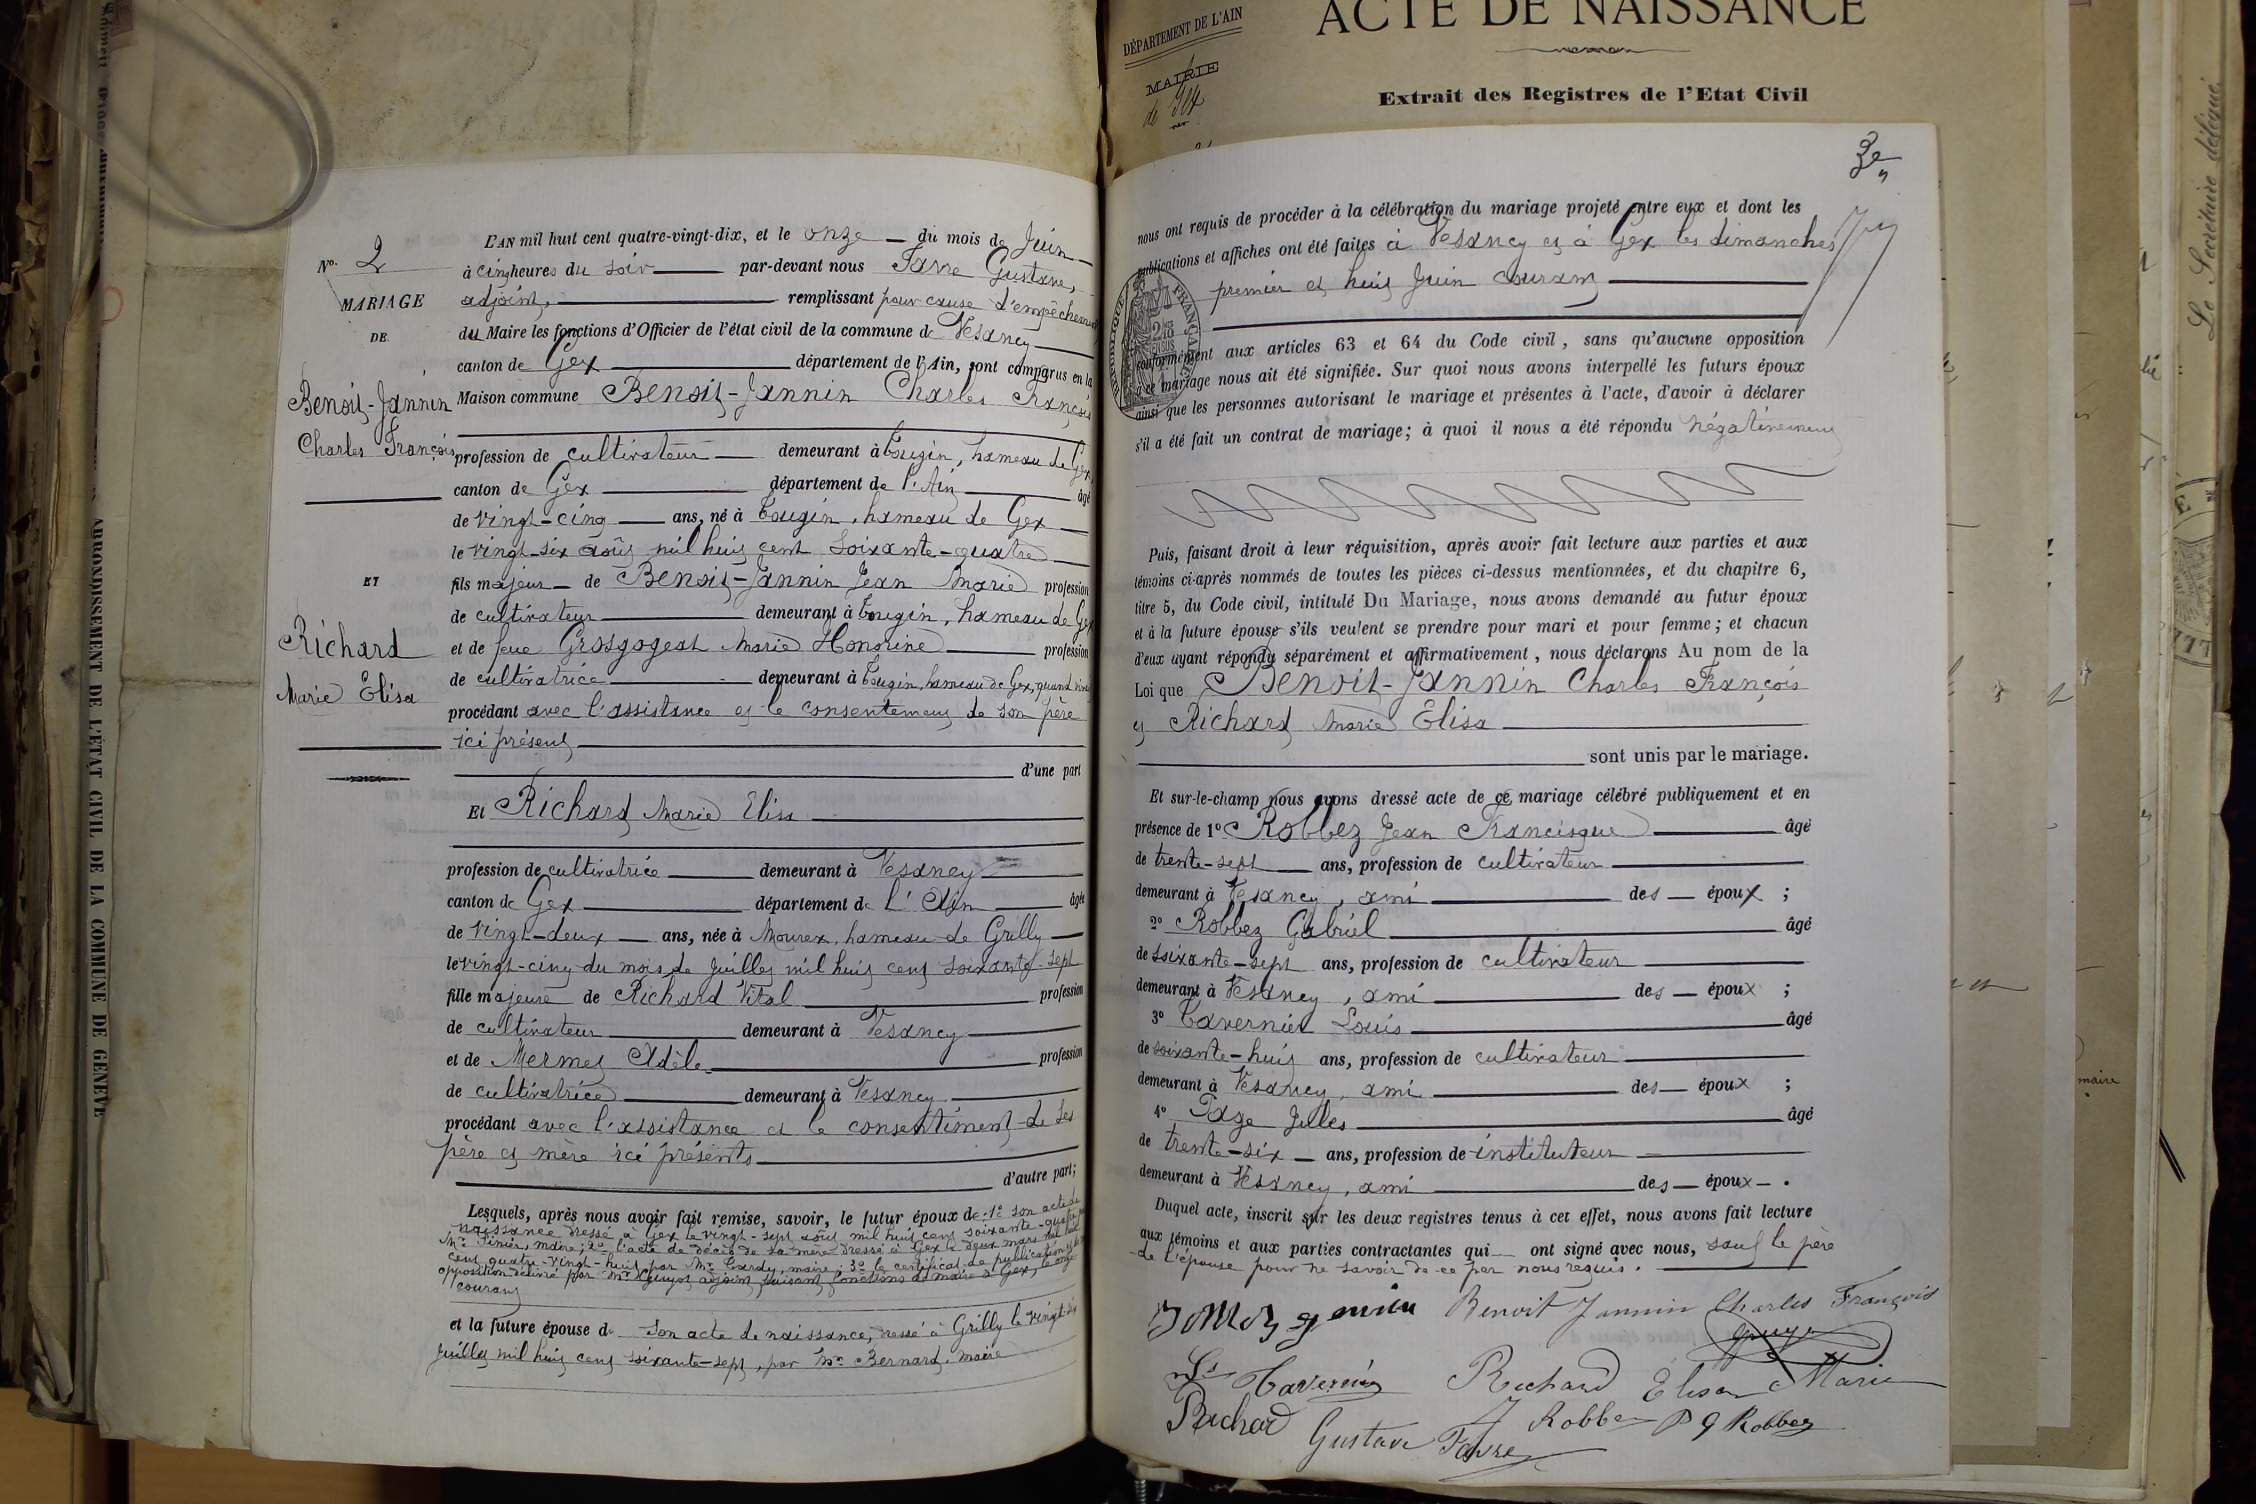 Nº. 2
MARIAGE
DE
Benoit-Jannin
Charles François
ET
Richard
Marie Elisa
L'AN mil huit cent quatre-vingt-dix, et le onze du mois de Juin
à cinq heures du soir par-devant nous Favre Gustave,
adjoint, remplissant pour cause d'empêchement
du Maire les fonctions d'Officier de l'état civil de la commune de Vesancy
canton de Gex département de l'Ain, sont comparus en la
Maison commune Benoit-Jannin Charles François
profession de cultivateur demeurant à Tougin, hameau de Gex
canton de Gex département de l'Ain âgé
de vingt-cinq ans, né à Tougin, hameau de Gex
le vingt-six août mil huit cent soixante-quatre
fils majeur de Benoit-Jannin Jean Marie profession
de cultivateur demeurant à Tougin, hameau de Gex
et de feue Grosgogeat Marie Honorine profession
de cultivatrice demeurant à Tougin, hameau de Gex, quand vivait
procédant avec l'assistance et le consentement de son père
ici présent
d'une part
Et Richard Marie Elisa
profession de cultivatrice demeurant à Vesancy
canton de Gex département de l'Ain âgée
de vingt-deux ans, née à Mourex, hameau de Grilly
le vingt-cinq du mois de Juillet mil huit cent soixante-sept
fille majeure de Richard Vital profession
de cultivateur demeurant à Vesancy
et de Mermet Adèle profession
de cultivatrice demeurant à Vesancy
procédant avec l'assistance et le consentiment de ses
père et mère ici présents
d'autre part;
Lesquels, après nous avoir fait remise, savoir, le futur époux de 1º son acte de
naissance dressé à Gex le vingt-sept août mil huit cent soixante-quatre par
Mr. maire; 2º l'acte de décès de sa mère dressé à Gex le deux mars mil huit
cent quatre-vingt-huit par Mr. maire; 3º le certificat de publication et de non
opposition délivré par Mr. adjoint faisant fonctions de maire à Gex, le onze
courant
et la future épouse de son acte de naissance, dressé à Grilly le vingt-six
Juillet mil huit cent soixante-sept, par Mr. Bernard, maire
DÉPARTEMENT DE L'AIN
MAIRIE
de Gex
ACTE DE NAISSANCE
Extrait des Registres de l'Etat Civil
3e
nous ont requis de procéder à la célébration du mariage projeté entre eux et dont les
publications et affiches ont été faites à Vesancy et à Gex les dimanches
premier et huit Juin courant
conformément aux articles 63 et 64 du Code civil, sans qu'aucune opposition
à ce mariage nous ait été signifiée. Sur quoi nous avons interpellé les futurs époux
ainsi que les personnes autorisant le mariage et présentes à l'acte, d'avoir à déclarer
s'il a été fait un contrat de mariage; à quoi il nous a été répondu négativement
Puis, faisant droit à leur réquisition, après avoir fait lecture aux parties et aux
témoins ci-après nommés de toutes les pièces ci-dessus mentionnées, et du chapitre 6,
titre 5, du Code civil, intitulé Du Mariage, nous avons demandé au futur époux
et à la future épouse s'ils veulent se prendre pour mari et pour femme; et chacun
d'eux ayant répondu séparément et affirmativement, nous déclarons Au nom de la
Loi que Benoit-Jannin Charles François
et Richard Marie Elisa
sont unis par le mariage.
Et sur-le-champ nous avons dressé acte de ce mariage célébré publiquement et en
présence de 1º Robbez Jean Francisque âgé
de trente-sept ans, profession de cultivateur
demeurant à Vesancy, ami des époux ;
2º Robbez Gabriel âgé
de soixante-sept ans, profession de cultivateur
demeurant à Vesancy, ami des époux ;
3º Tavernier Louis âgé
de soixante-huit ans, profession de cultivateur
demeurant à Vesancy, ami des époux ;
4º Page Jules âgé
de trente-six ans, profession de instituteur
demeurant à Vesancy, ami des époux .
Duquel acte, inscrit sur les deux registres tenus à cet effet, nous avons fait lecture
aux témoins et aux parties contractantes qui ont signé avec nous, sauf le père
de l'épouse pour ne savoir de ce par nous requis.
Benoit Jannin Charles François
Ls Tavernier Richard Elisa Marie
Richard J Robbez P G Robbez
Gustave Favre
ARRONDISSEMENT DE L'ÉTAT CIVIL DE LA COMMUNE DE GENÈVE
Le Secrétaire délégué
maire